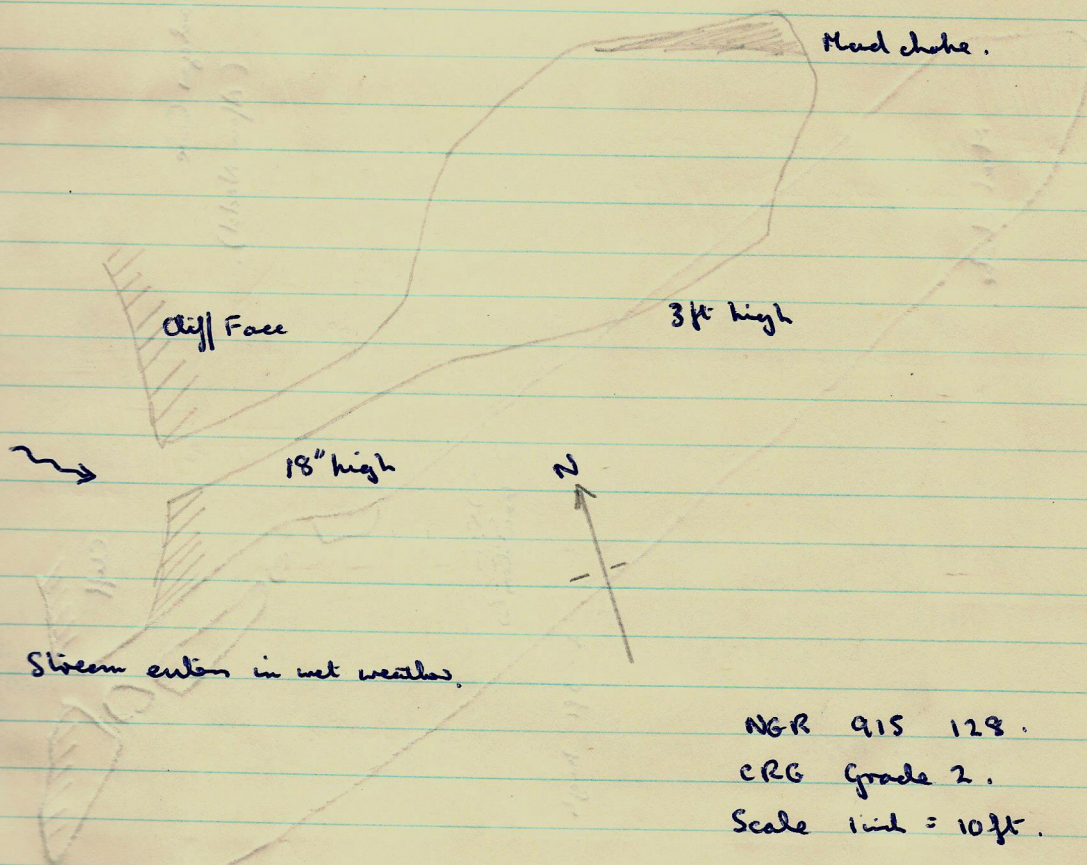 Mud choke.
Cliff Face
3ft high
18" high
N
Stream enters in wet weather.
NGR 915 128.
CRG Grade 2.
Scale 1 inch = 10ft.